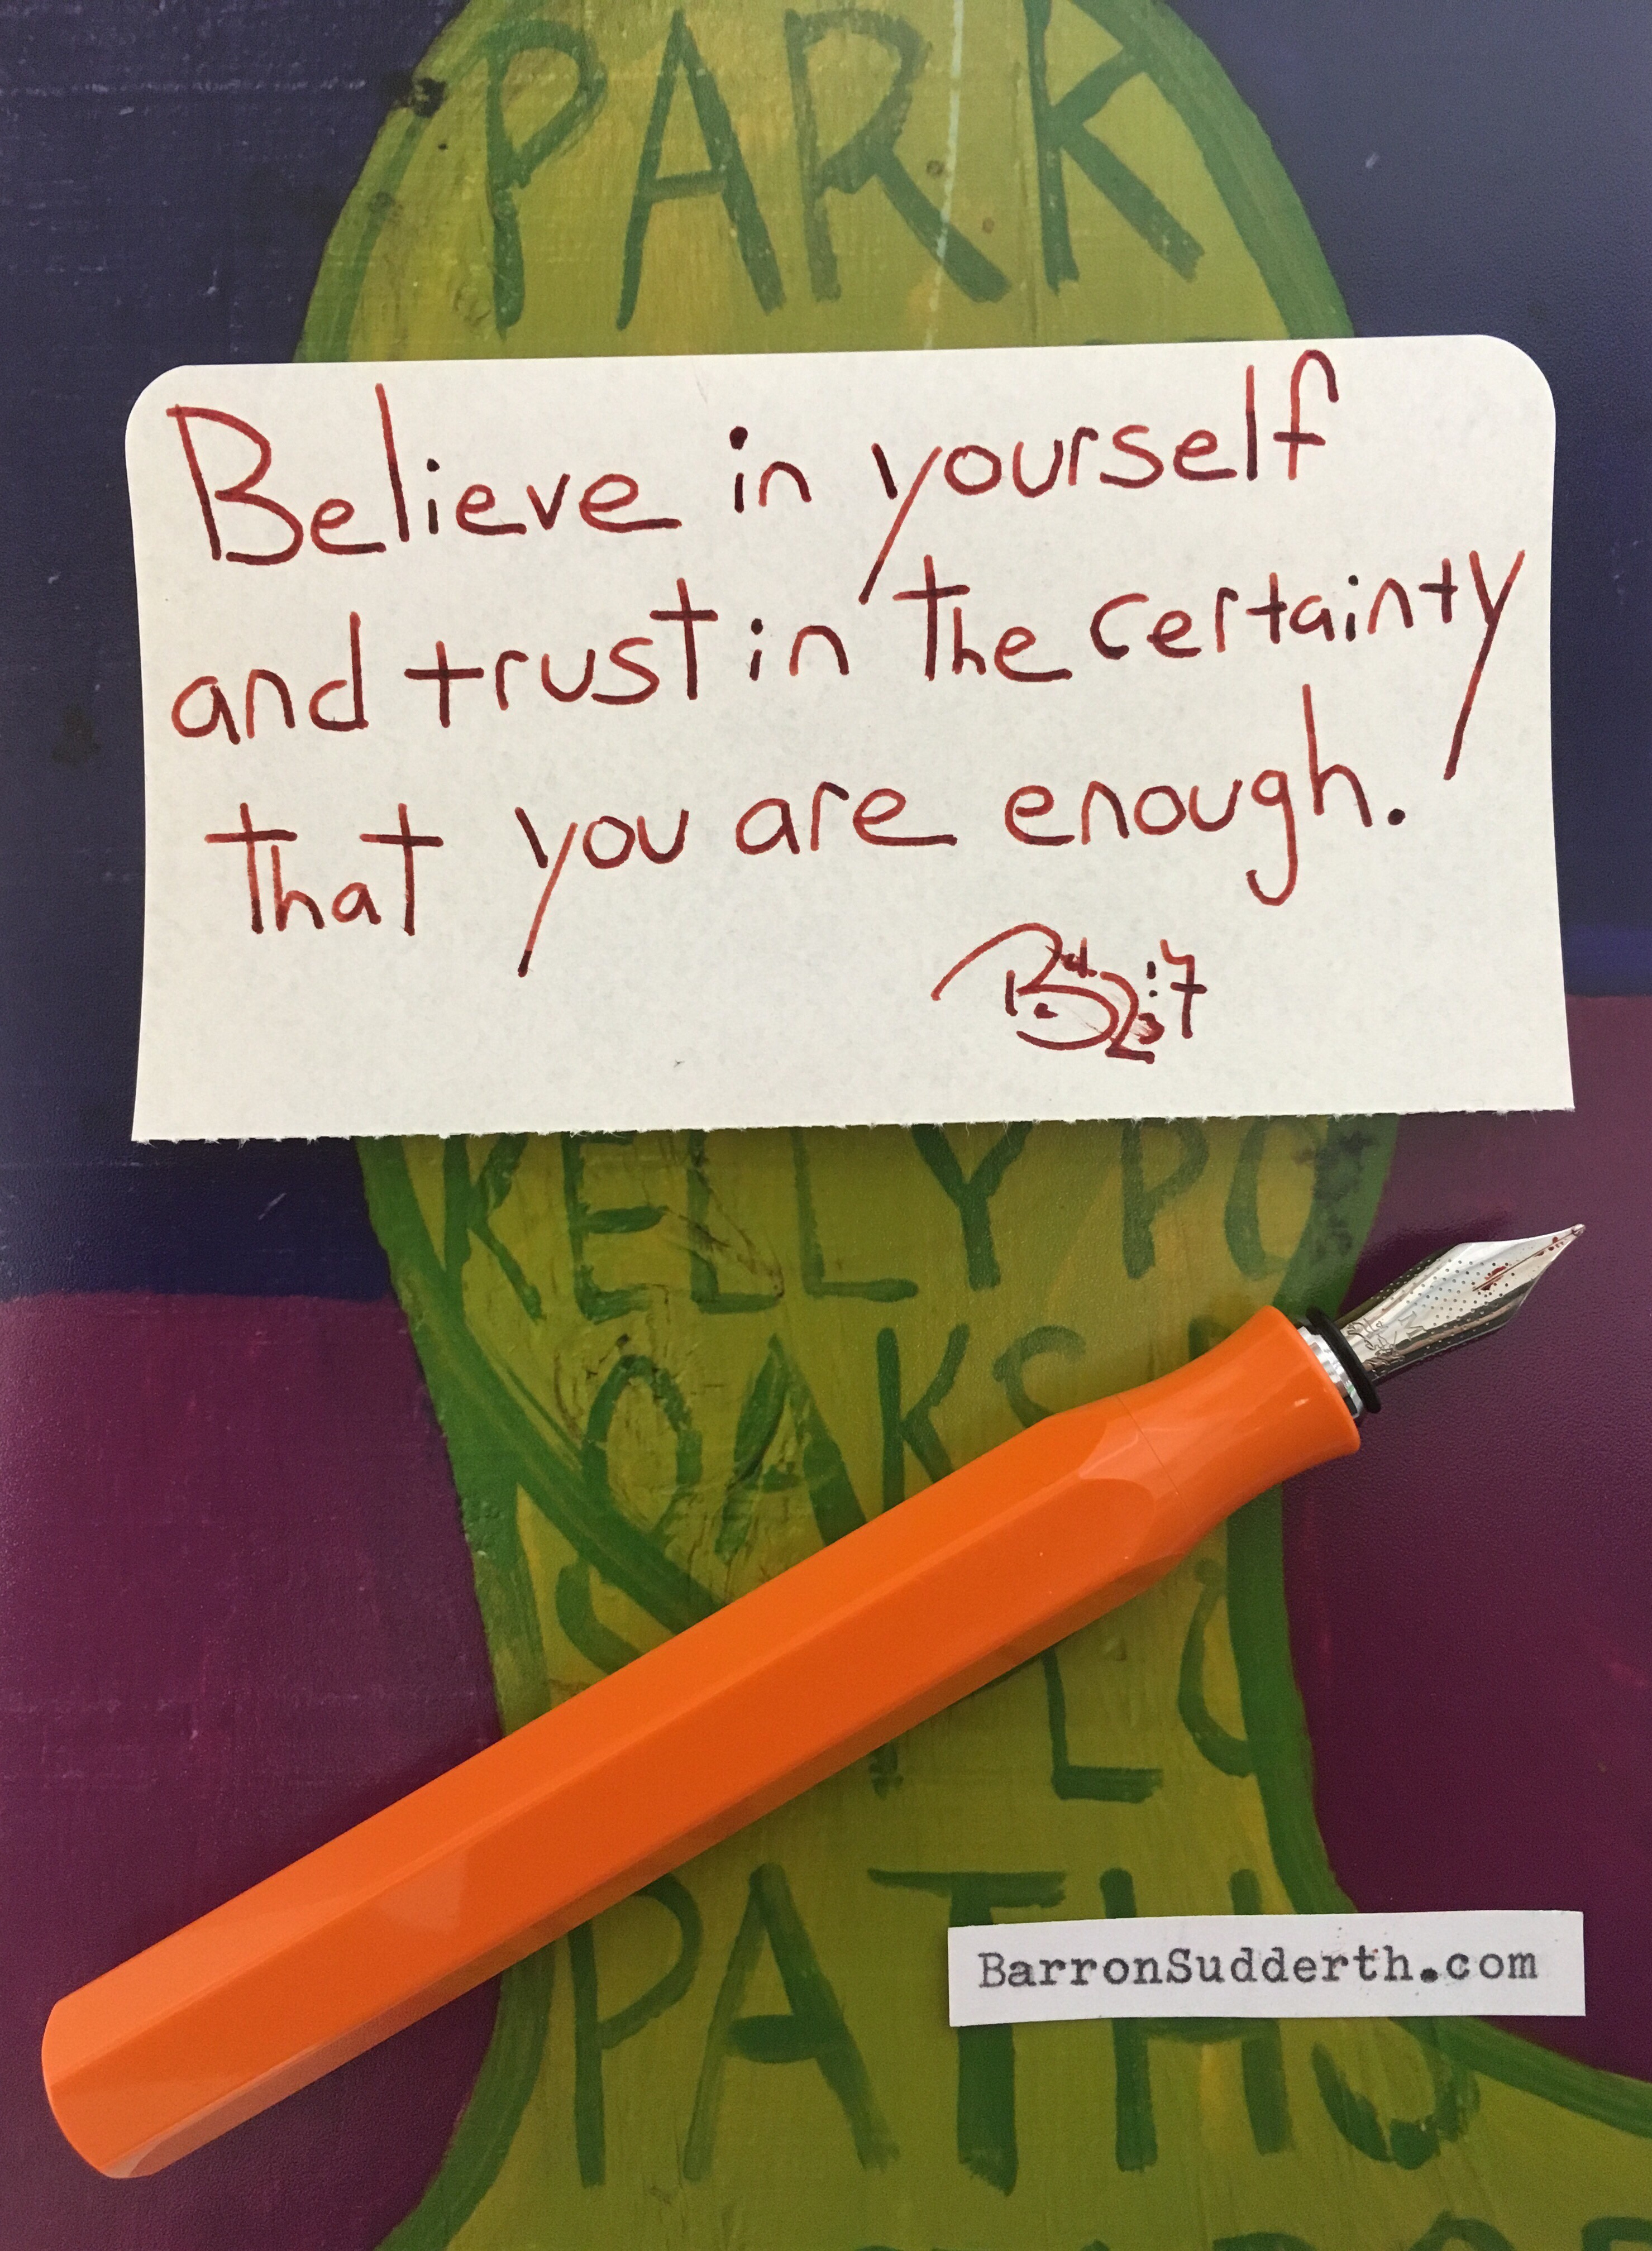 PARK
Believe in yourself
and trust in the certainty
that you are enough.
KELLY PO
OAKS
PATHS
BarronSudderth.com